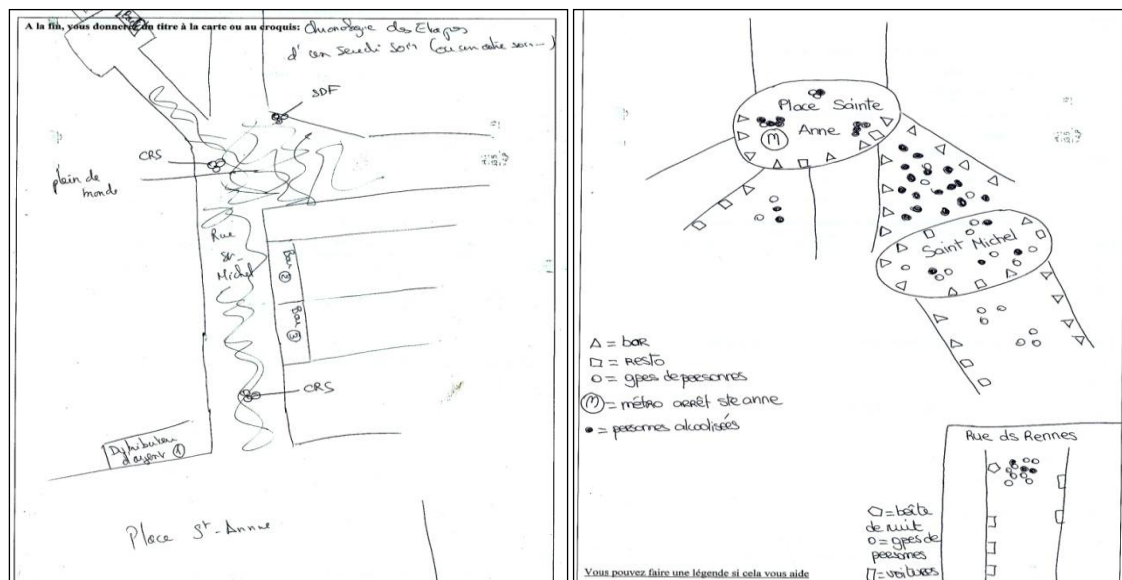 A la fin, vous donnerez un titre à la carte ou au croquis: Chronologie des Etapes
d'un Jeudi Soir (ou un autre soir...)
SDF
CRS
plein de
monde
Rue
St-
Michel
Bar ②
Bar ③
CRS
Distributeur
d'argent ①
Place St-Anne
Place Sainte
Anne
M
Saint Michel
△ = bar
□ = resto
○ = gpes de personnes
Ⓜ = métro arrêt ste anne
● = personnes alcoolisées
Rue ds Rennes
⬠ = boîte
de nuit
○ = gpes de
personnes
□ = voitures
Vous pouvez faire une légende si cela vous aide